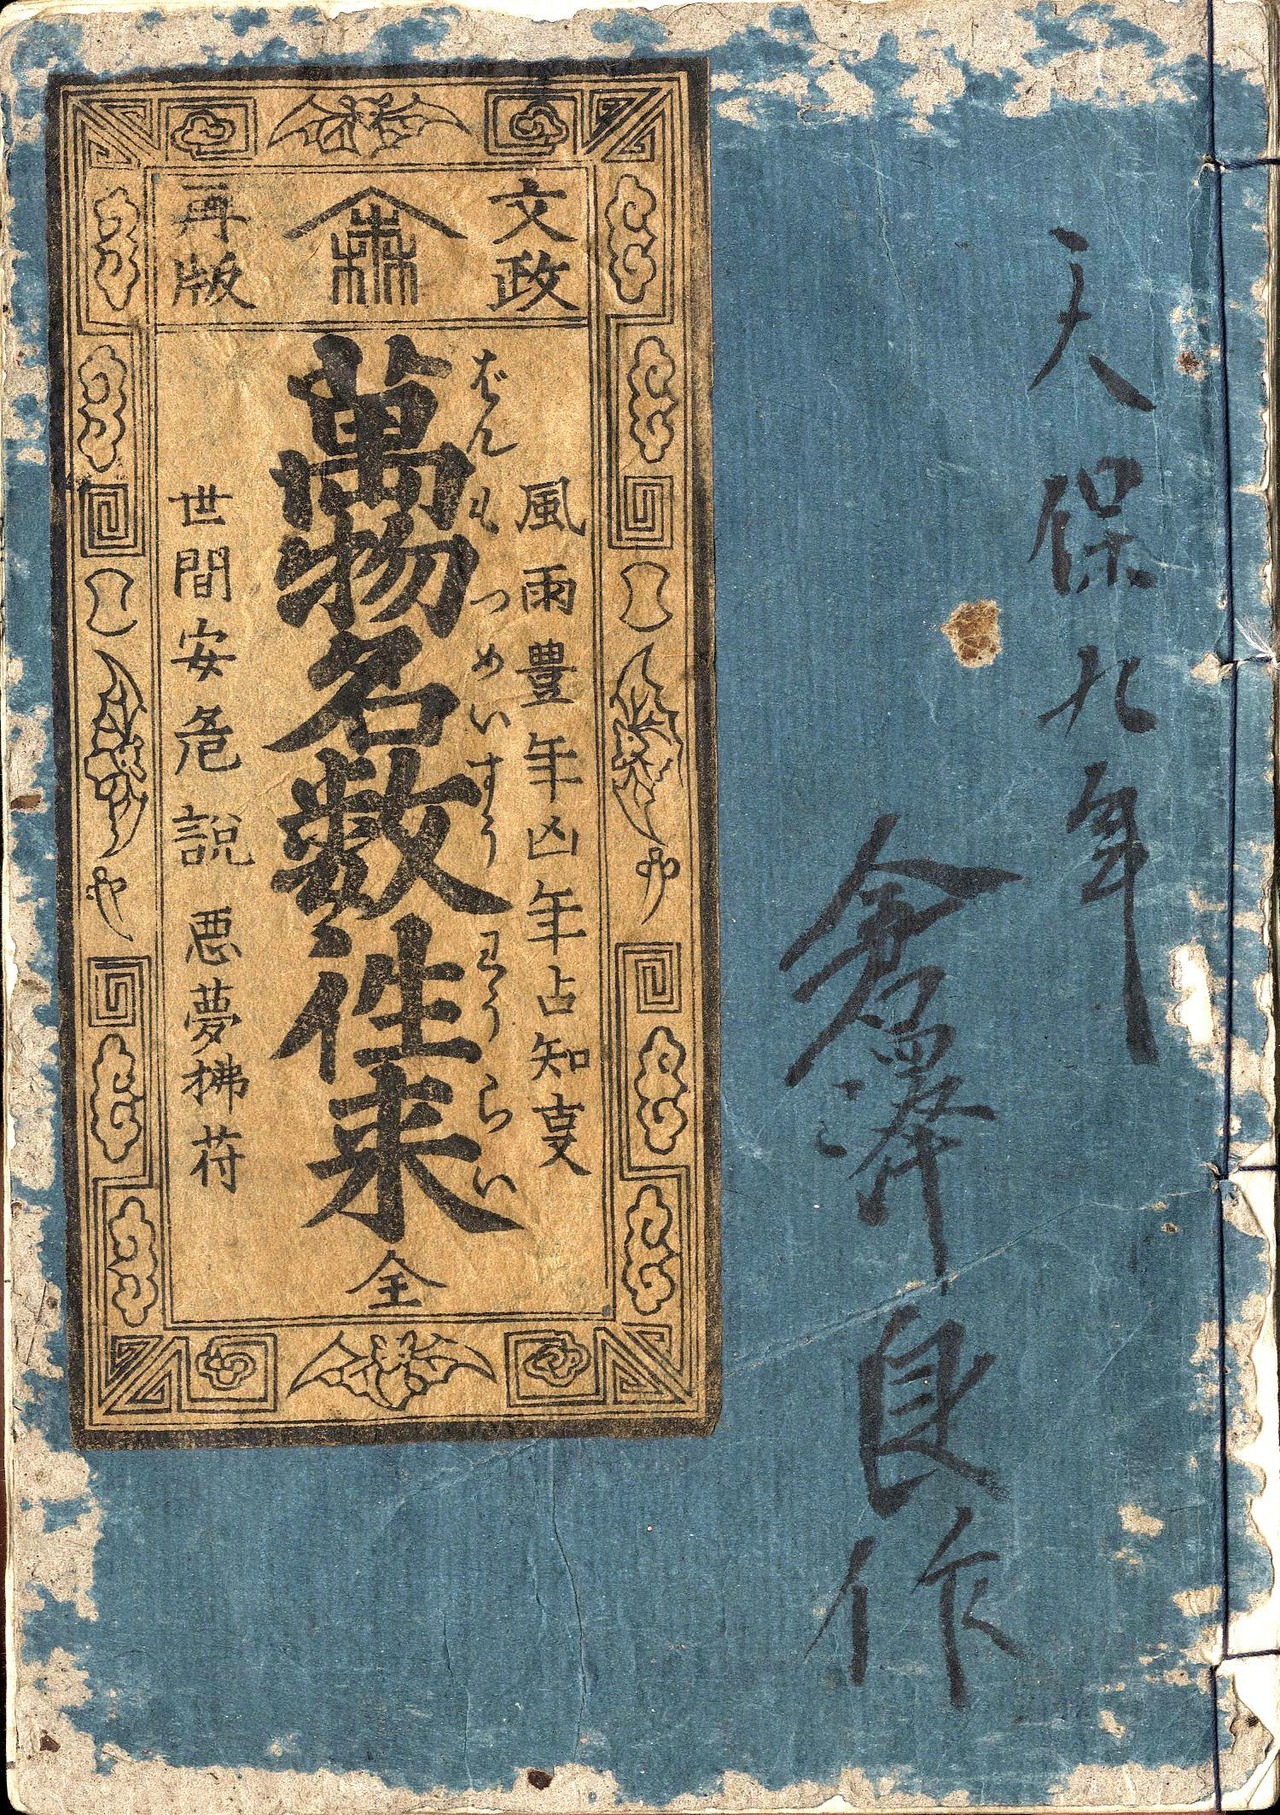 天保九年
倉澤良作
文政
再版
風雨豊年凶年占知㕝
ばんもつめいすうわうらい
萬物名数徃来 全
世間安危説 悪夢拂符